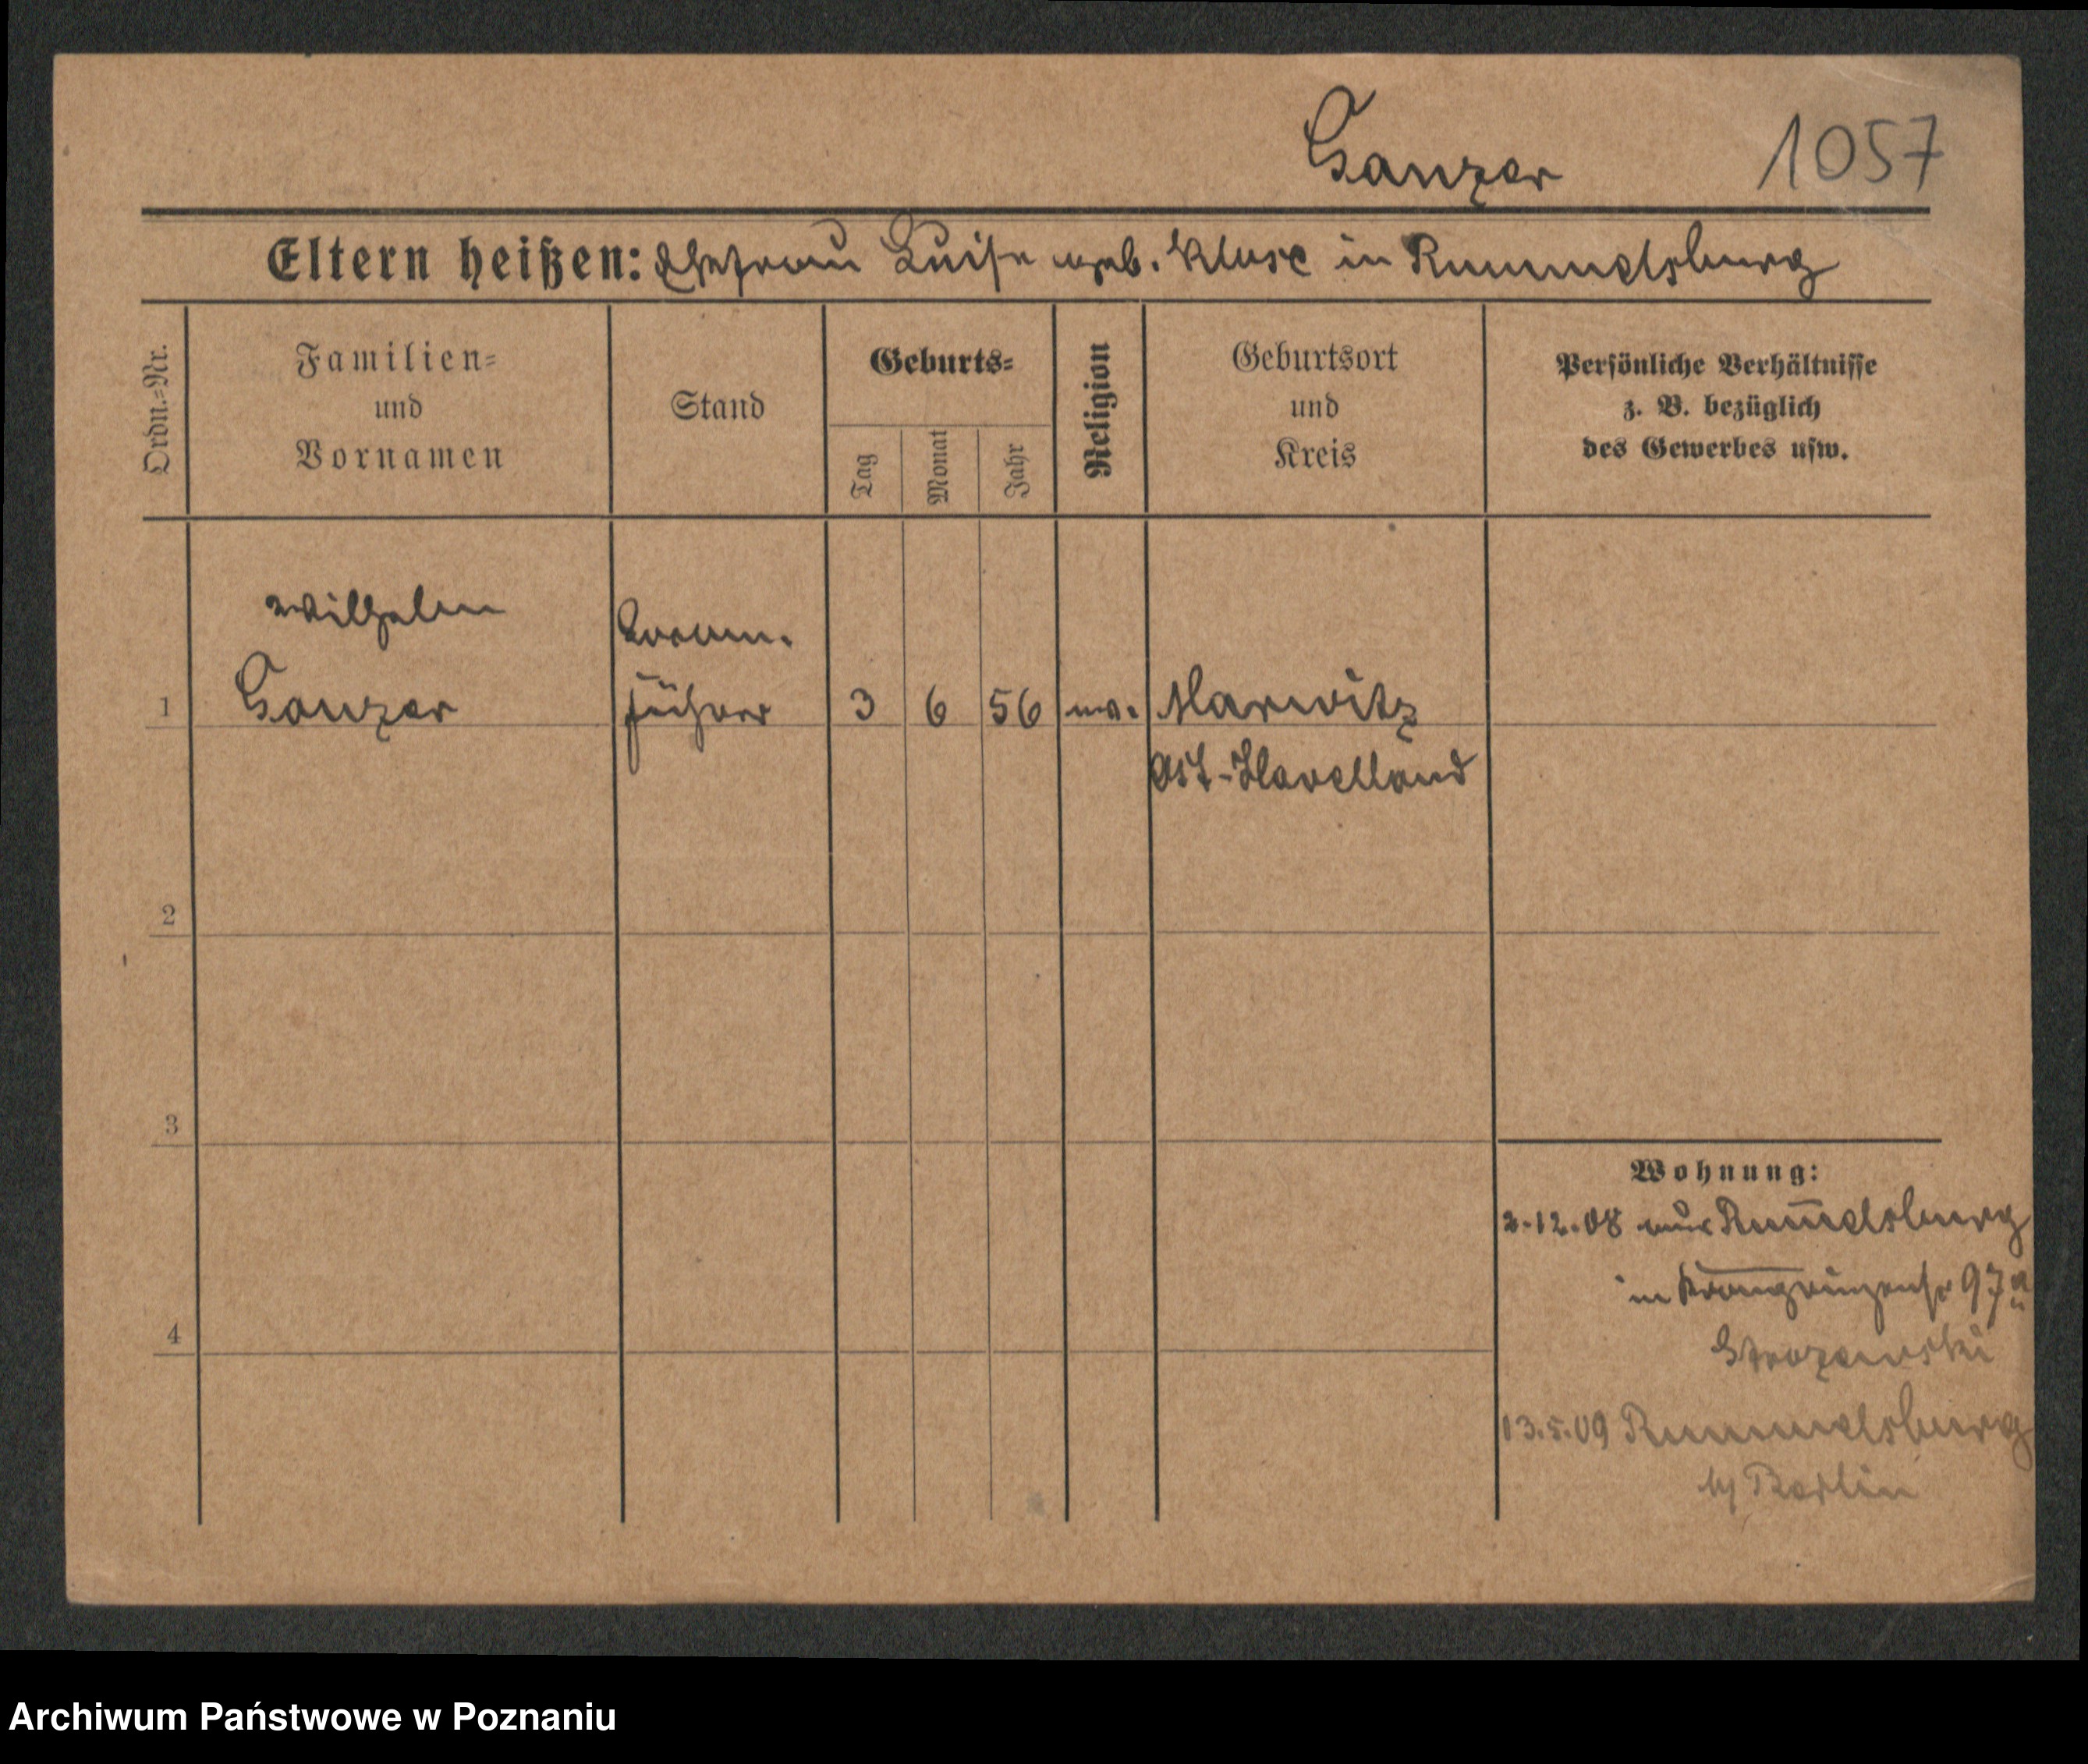 Ganzer 1057
Eltern heißen: Ehefrau Luise geb. Kluse in Rummelsburg
Ordn.-Nr.
Familien-
und
Vornamen
Stand
Geburts-
Tag
Monat
Jahr
Religion
Geburtsort
und
Kreis
Persönliche Verhältnisse
z. B. bezüglich
des Gewerbes usw.
Wilhelm
Ganzer
führer
1 3 6 56 ev. Marwitz
Ost-Havelland
2
3
4
Wohnung:
2.12.08 aus Rummelsburg
in Kronprinzenstr 97a
13.5.09 Rummelsburg
b/ Berlin
Archiwum Państwowe w Poznaniu